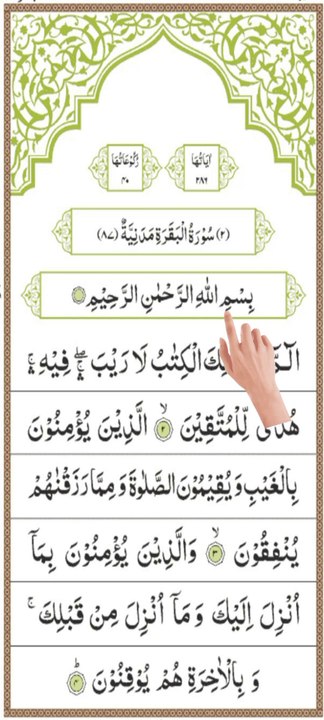 اٰيَاتُهَا
رُكُوْعَاتُهَا
٢٨٦
٤٠
(٢) سُوْرَةُ الْبَقَرَةِ مَدَنِيَّةٌ (٨٧)
بِسْمِ اللّٰهِ الرَّحْمٰنِ الرَّحِيْمِ
الٓمّٓ لِكَ الْكِتٰبُ لَا رَيْبَ ۛۖ فِيْهِ ۛۚ
هُدًى لِّلْمُتَّقِيْنَ ۙ ٢ الَّذِيْنَ يُؤْمِنُوْنَ
بِالْغَيْبِ وَ يُقِيْمُوْنَ الصَّلٰوةَ وَ مِمَّا رَزَقْنٰهُمْ
يُنْفِقُوْنَ ۙ ٣ وَالَّذِيْنَ يُؤْمِنُوْنَ بِمَاۤ
اُنْزِلَ اِلَيْكَ وَ مَاۤ اُنْزِلَ مِنْ قَبْلِكَ ۚ
وَ بِالْاٰخِرَةِ هُمْ يُوْقِنُوْنَ ؕ ٤